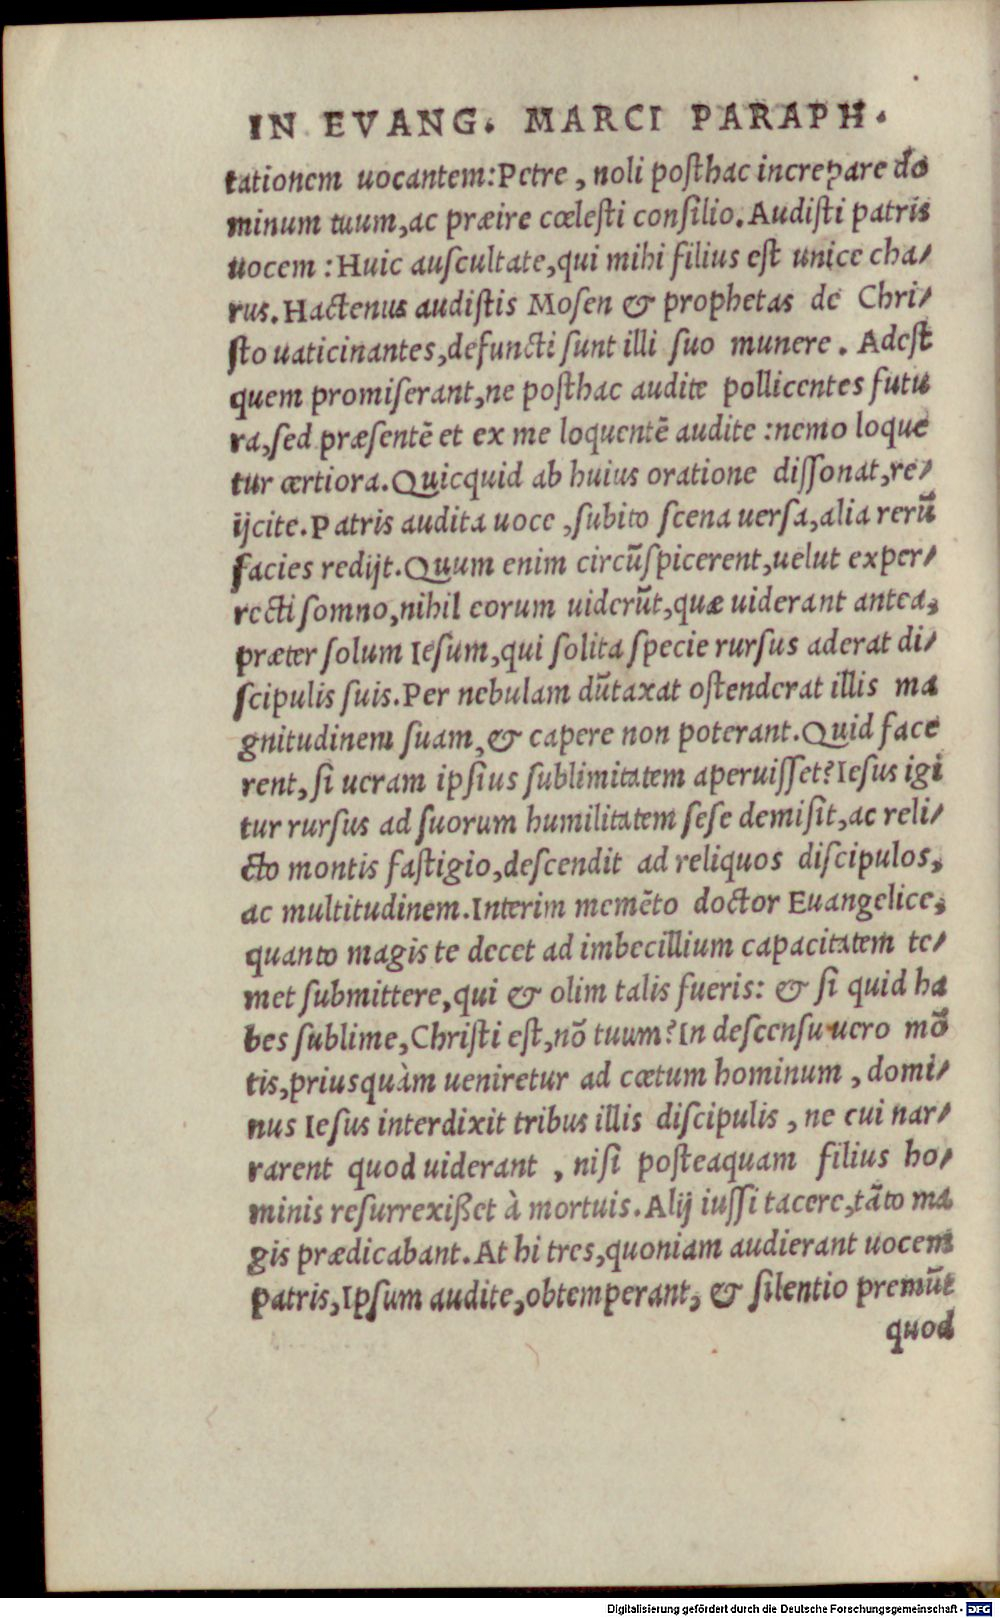 IN EVANG. MARCI PARAPH.
tationem uocantem: Petre, noli posthac increpare do
minum tuum, ac præire cœlesti consilio. Audisti patris
uocem: Huic auscultate, qui mihi filius est unice cha-
rus. Hactenus audistis Mosen & prophetas de Chri-
sto uaticinantes, defuncti sunt illi suo munere. Adest
quem promiserant, ne posthac audite pollicentes futu
ra, sed præsentē et ex me loquentē audite: nemo loque
tur certiora. Quicquid ab huius oratione dissonat, re-
ijcite. Patris audita uoce, subito scena uersa, alia rerū
facies redijt. Quum enim circūspicerent, uelut exper-
recti somno, nihil eorum uiderūt, quæ uiderant antea,
præter solum Iesum, qui solita specie rursus aderat di-
scipulis suis. Per nebulam dūtaxat ostenderat illis ma
gnitudinem suam, & capere non poterant. Quid face
rent, si ueram ipsius sublimitatem aperuisset? Iesus igi
tur rursus ad suorum humilitatem sese demisit, ac reli-
cto montis fastigio, descendit ad reliquos discipulos,
ac multitudinem. Interim memēto doctor Euangelice,
quanto magis te decet ad imbecillium capacitatem te-
met submittere, qui & olim talis fueris: & si quid ha
bes sublime, Christi est, nō tuum? In descensu uero mō
tis, priusquàm ueniretur ad cœtum hominum, domi-
nus Iesus interdixit tribus illis discipulis, ne cui nar-
rarent quod uiderant, nisi posteaquam filius ho-
minis resurrexißet à mortuis. Alij iussi tacere, tāto ma
gis prædicabant. At hi tres, quoniam audierant uocem
patris, Ipsum audite, obtemperant, & silentio premūt
quod
Digitalisierung gefördert durch die Deutsche Forschungsgemeinschaft - DFG